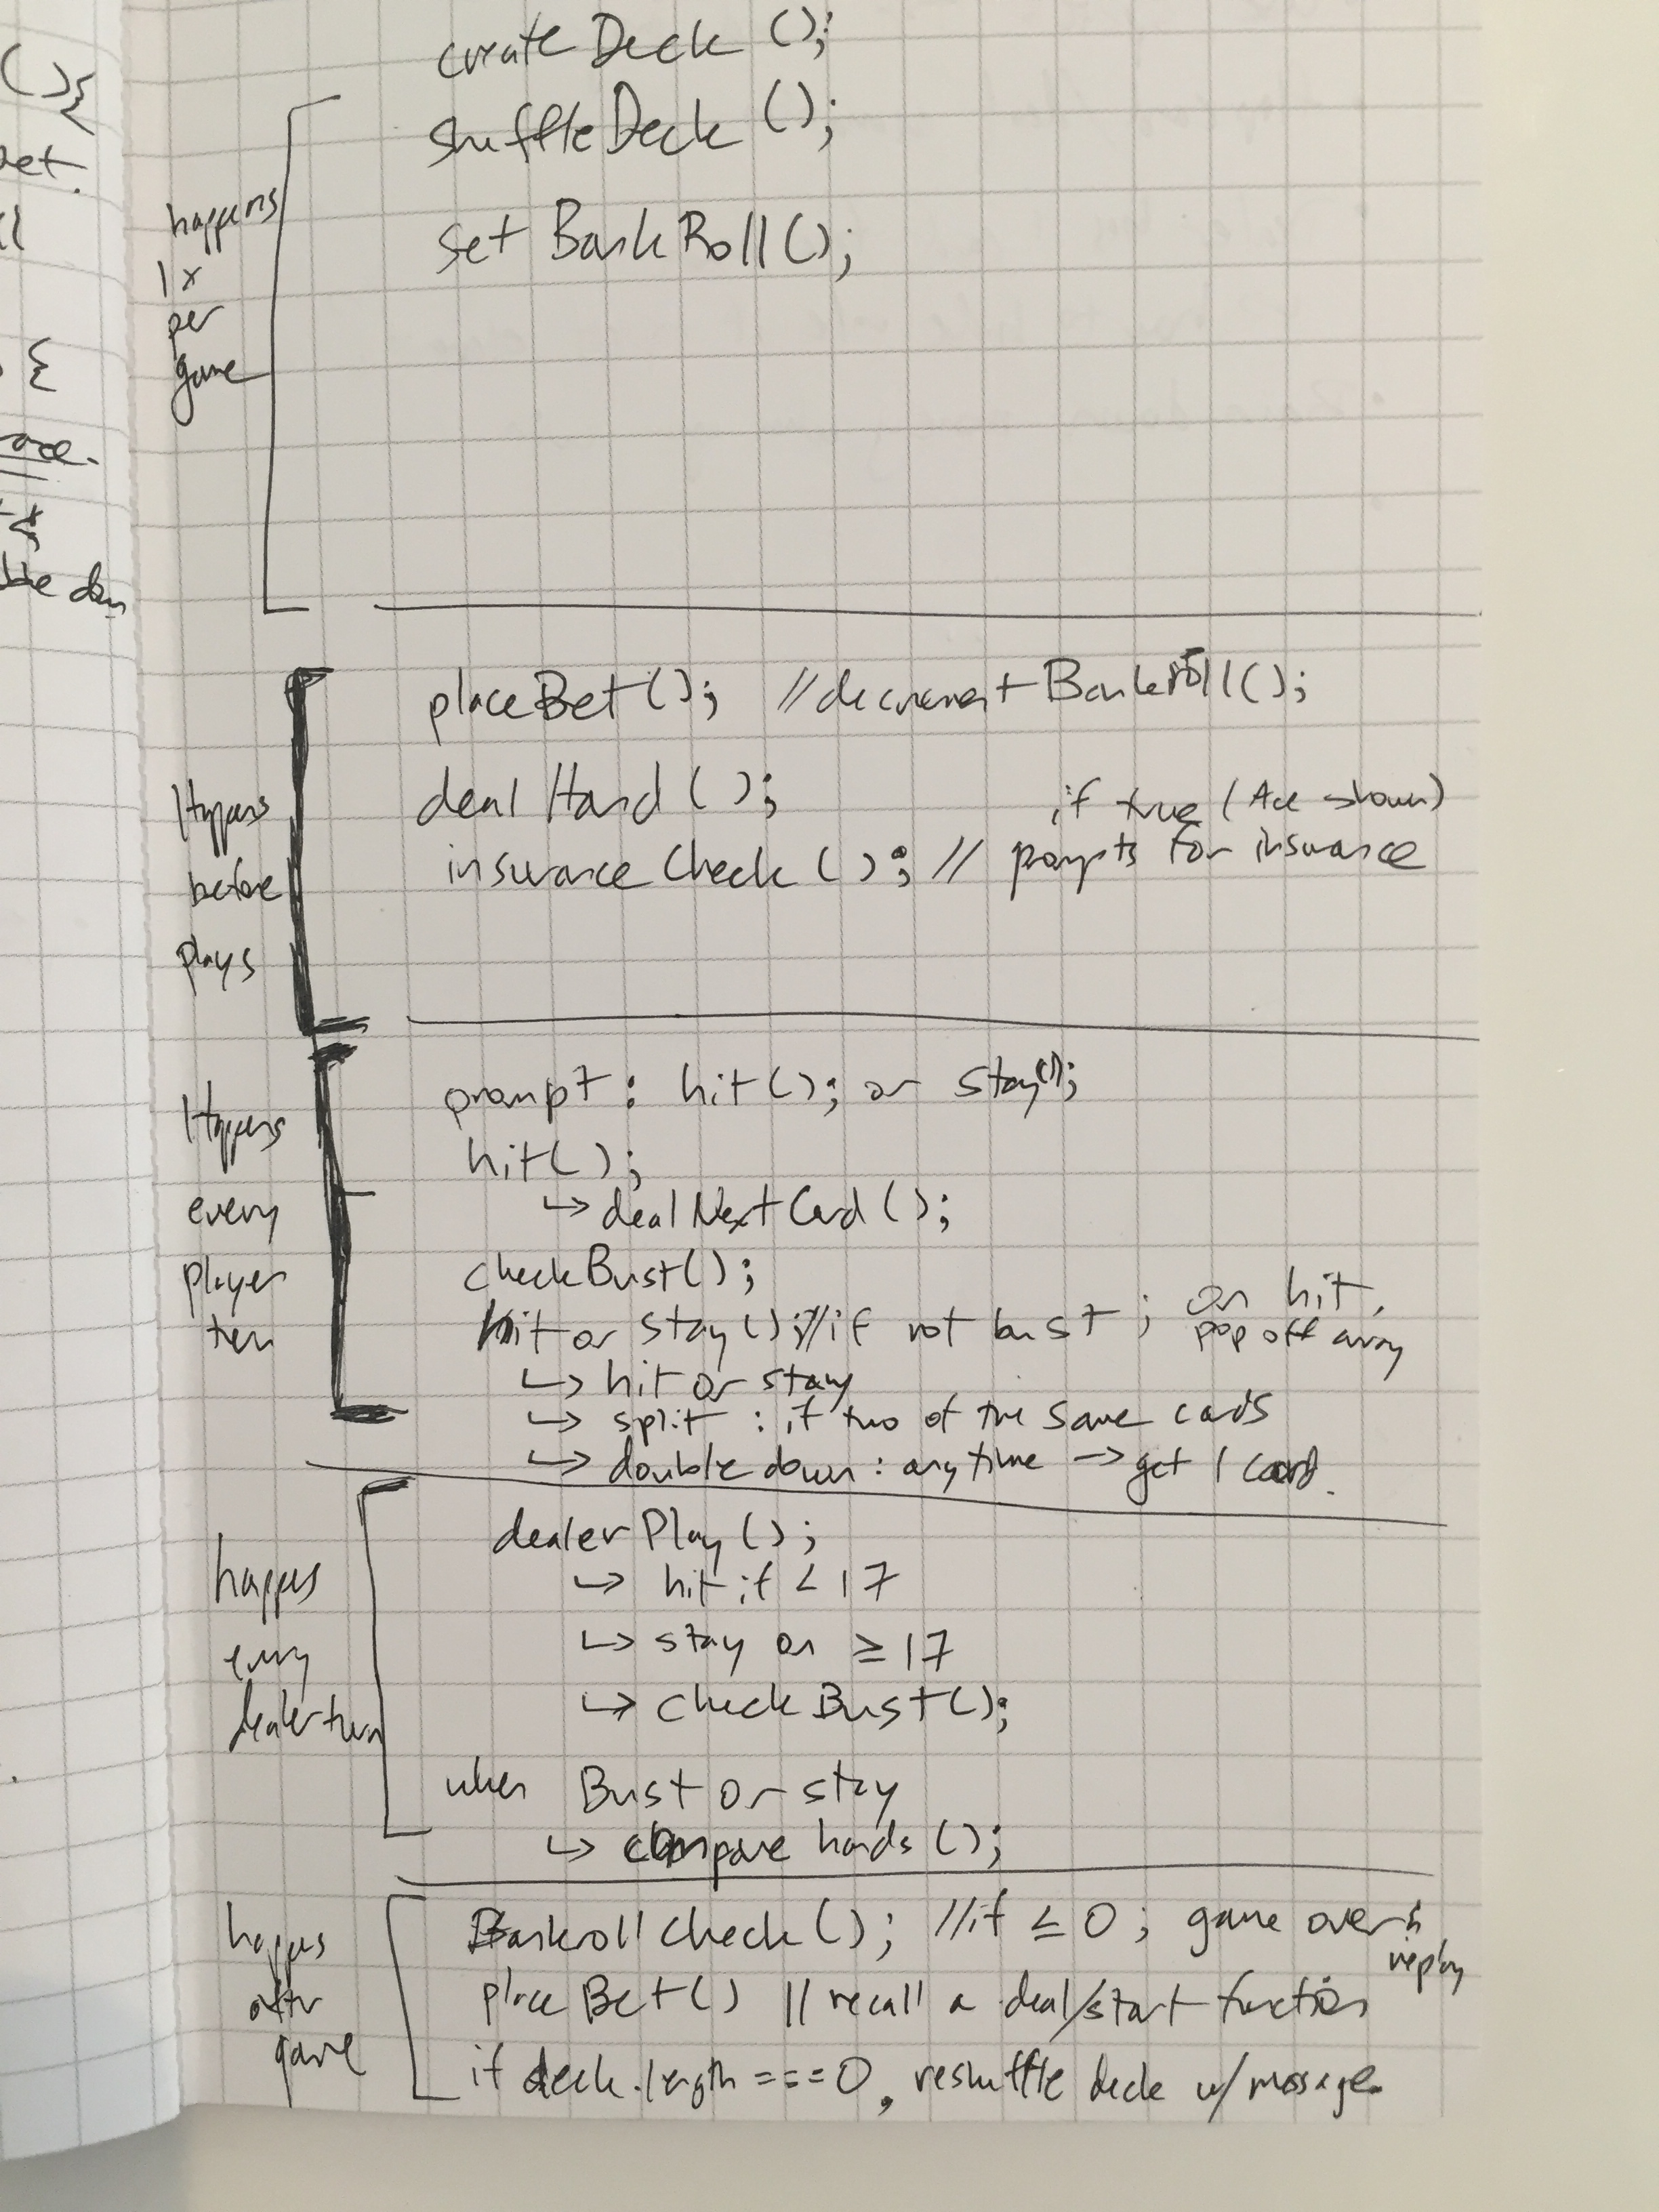 (){
bet.
{
createDeck ();
shuffleDeck ();
set BankRoll();
happens
1x
per
game
placeBet(); //decrement Bankroll();
dealHand ();
if true (Ace shown)
insuranceCheck (); // prompts for insurance
Happens
before
plays
prompt: hit(); or stay();
hit();
↳ dealNextCard ();
checkBust();
on hit,
hit or stay();//if not bust; pop off array
↳ hit or stay
↳ split : if two of the same cards
↳ double down: anytime → get 1 card.
Happens
every
player
turn
dealerPlay ();
↳ hit if < 17
↳ stay on ≥ 17
↳ checkBust();
when Bust or stay
↳ compare hands ();
happens
every
dealer turn
Bankroll Check (); //if ≤ 0; game over &
replay
placeBet() // recall a deal/start function
if deck.length ===0, reshuffle deck w/ message.
happens
after
game